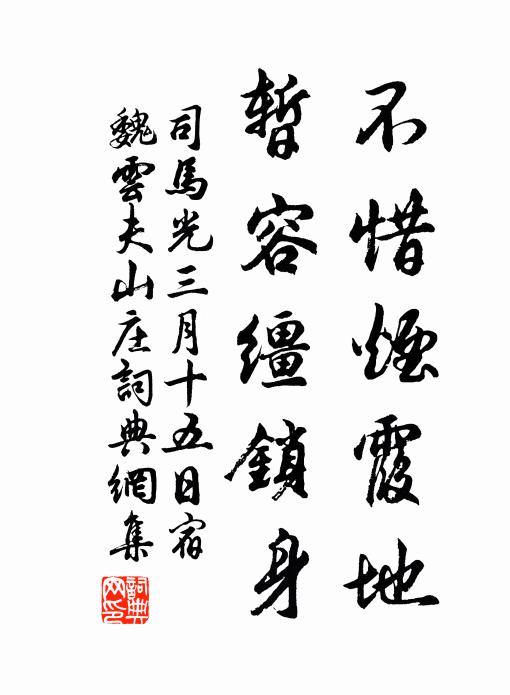 不惜煙霞地
暫容繮鎖身
司馬光三月十五日宿
魏雲夫山庄詞典網集
詞典网印